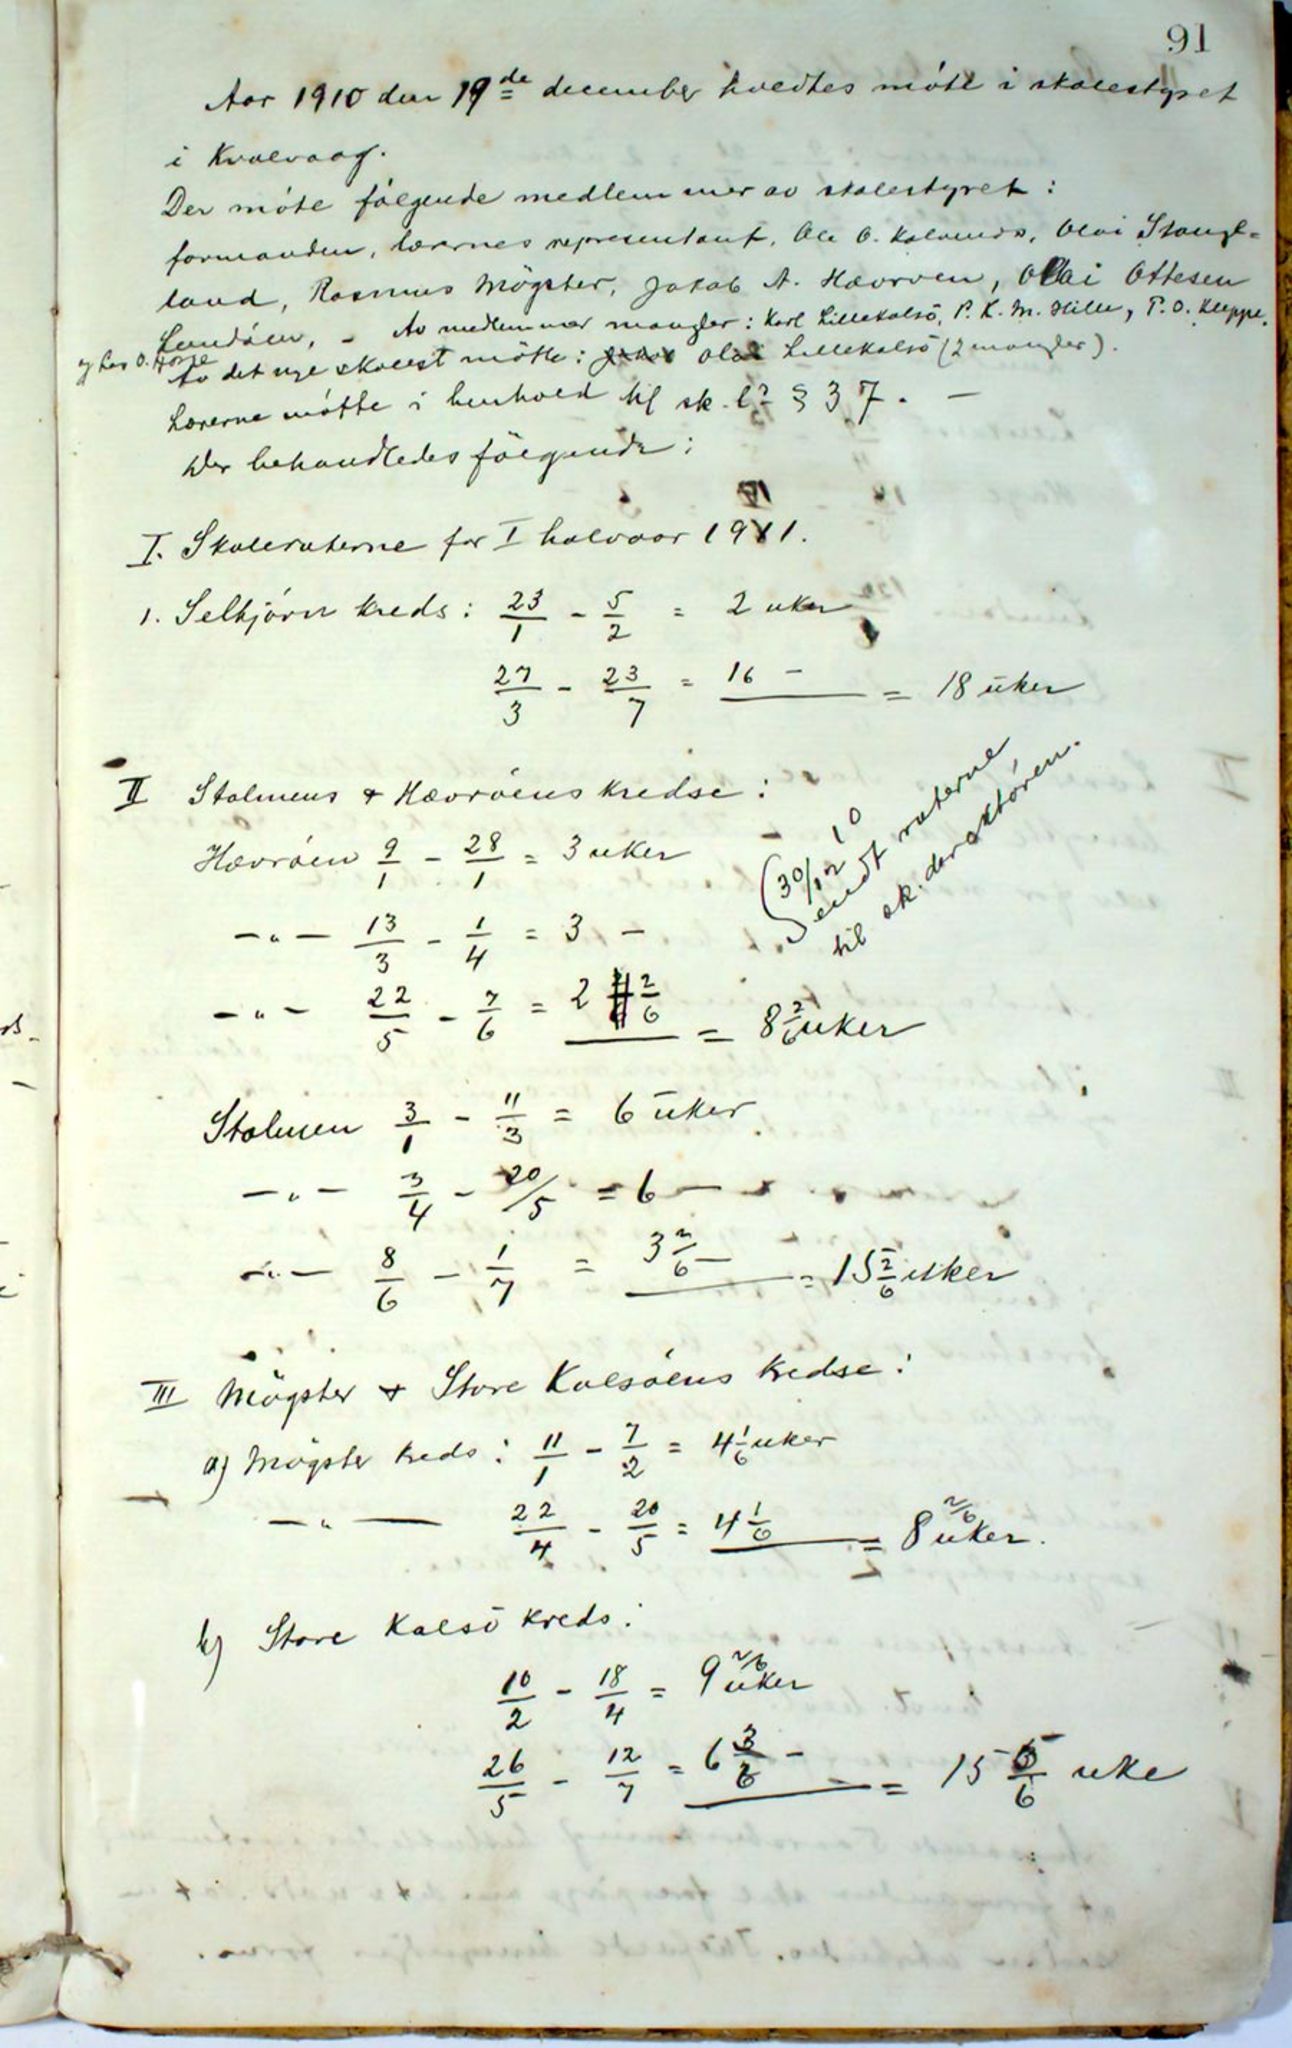 91
Aar 1910 den 19de december holdtes möte i skolestyret
i Kvalvaag.
Der möte fölgende medlemmer av skolestyret:
formanden, lærernes representant, Ole O. Kalvenes, Olai Stangl=
land, Rasmus Mögster, Jakob A. Hævröen, Olai Ottesen
Lundöen, - Av medlemmer mangler: Karl Lillekalsö, P. K. M. Hille, T. O. Kleppe,
og Lars O. Horge
Av det nye skolest mötte: Olai Lillekalsö (2 mangler).
Lærerne møtte i henhold til sk. l? § 37. -
Der behandledes fölgende:
I. Skoleruterne for I halvaar 1911.
1. Selbjörn kreds: 23/1 - 5/2 = 2 uker
27/3 - 23/7 = 16 - = 18 uker
II Stolmens & Hævröens kredse:
(30/12 10
Sendt ruterne,
til sk. derektören.
Hævröen 9/1 - 28/1 = 3 uker
-"- 13/3 - 1/4 = 3 -
-"- 22/5 - 7/6 = 2 2/6 = 8 2/6 uker
Stolmen 3/1 - 11/3 = 6 uker
-"- 3/4 - 20/5 = 6 -
-"- 8/6 - 1/7 = 3 2/6 - = 15 2/6 uker
III Mögster & Store Kalsöens kredse:
a) Mögster kreds: 11/1 - 7/2 = 4 1/6 uker
-"- 22/4 - 20/5 = 4 1/6 = 8 2/6 uker.
b) Store Kalsö kreds:
10/2 - 18/4 = 9 2/6 uker
26/5 - 12/7 = 6 3/6 - = 15 5/6 uke